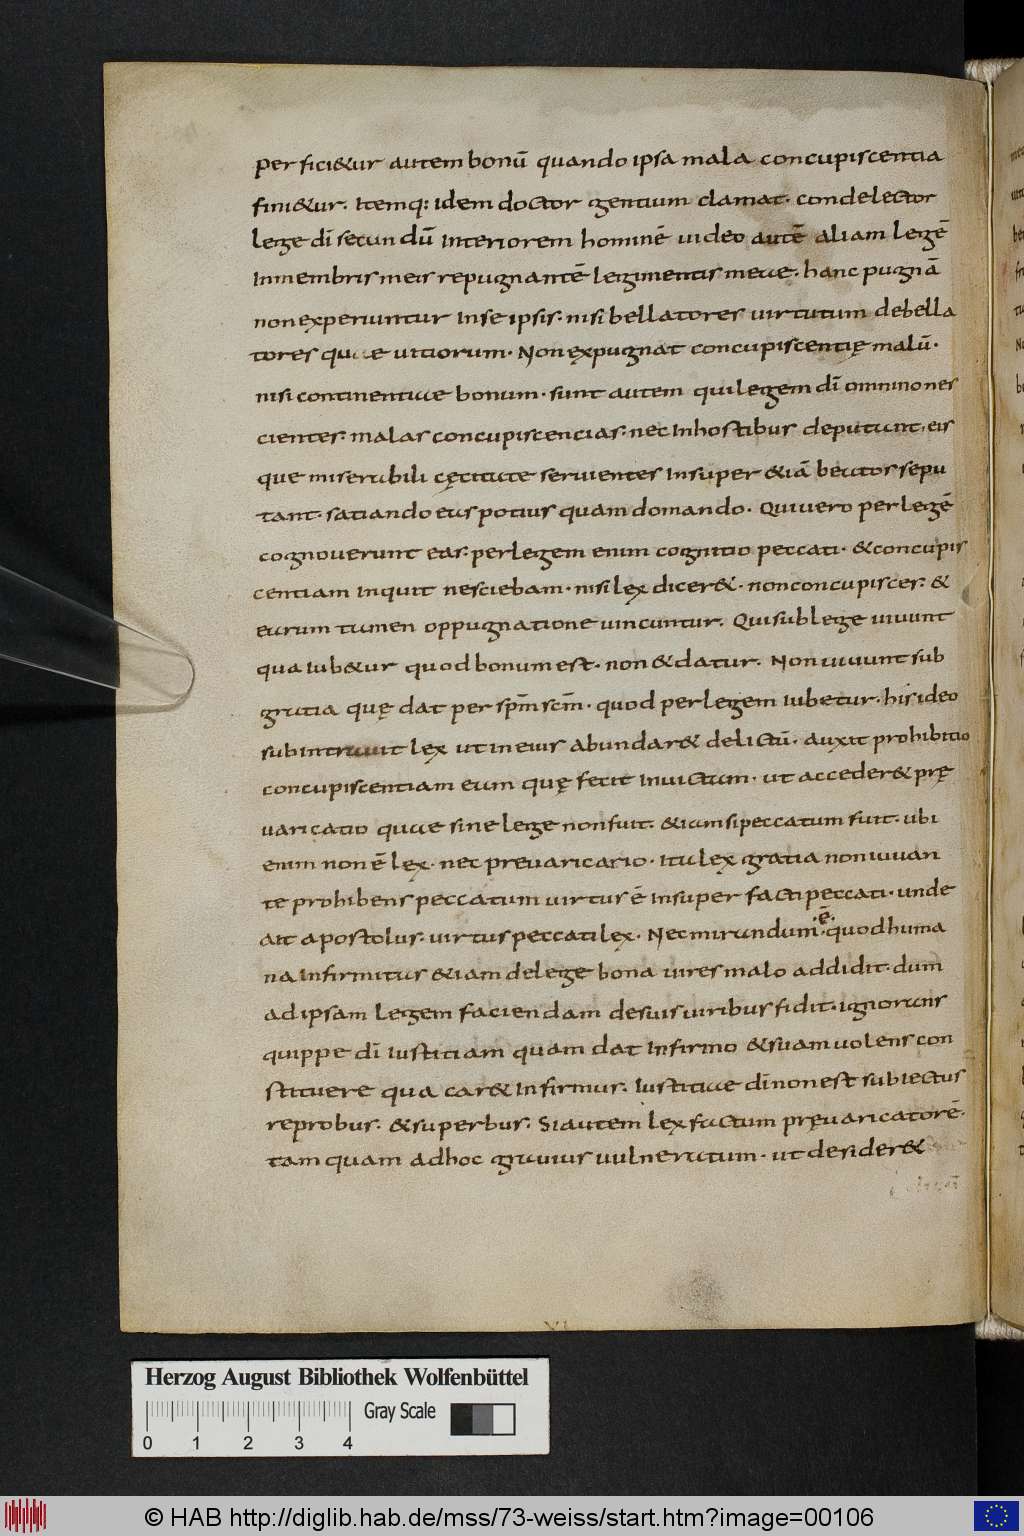 Perfici&ur autem bonū quando ipsa mala concupiscentia
fini&ur. Itemq: idem doctor gentium clamat. condelector
lege dī secundū Interiorem hominē uideo autē aliam legē
In membris meis repugnantē legi mentis meae. hanc pugnā
non experiuntur In se ipsis. nisi bellatores uirtutum debella
tores quae uitiorum. Non ęxpugnat concupiscentię malū.
nisi continentiae bonum. sunt autem qui legem dī omnino nes
cientes. malas concupiscencias. nec In hostibus deputant. eis
que miserabili cęcitate seruientes Insuper &iā beatos sepu
tant. satiando eas potius quam domando. Qui uero per legē
cognouerunt eas. per legem enim cognitio peccati. & concupis
centiam Inquit nesciebam. nisi lex dicer&. non concupisces. &
earum tamen oppugnatione uincuntur. Qui sub lege uiuunt
qua Iub&ur quod bonum est. non & datur. Non uiuunt sub
gratia quę dat per spm̄ scm̄. quod per legem Iubetur. his ideo
subintrauit lex ut in eius abundar& delictū. auxit prohibitio
concupiscentiam eam quę fecit Inuictam. ut acceder& prę
uaricatio quae sine lege non fuit. &iam si peccatum fuit. ubi
enim non ē lex. nec preuaricario. Ita lex gratia non iuuan
te prohibens peccatum uirtus ē Insuper facti peccati. unde
ait apostolus. uirtus peccati lex. Nec mirandum .ē. quod huma
na Infirmitas &iam de lege bona uires malo addidit. dum
ad ipsam legem faciendam de suis uiribus fidit. ignorans
quippe dī Iustitiam quam dat Infirmo & suam uolens con
stituere qua car& Infirmus. Iustitiae dī non est subiectus
reprobus. & superbus. Si autem lex factum pręuaricatorē.
tamquam adhoc grauius uulneratum. ut desider&
Herzog August Bibliothek Wolfenbüttel
Gray Scale
0 1 2 3 4
© HAB http://diglib.hab.de/mss/73-weiss/start.htm?image=00106